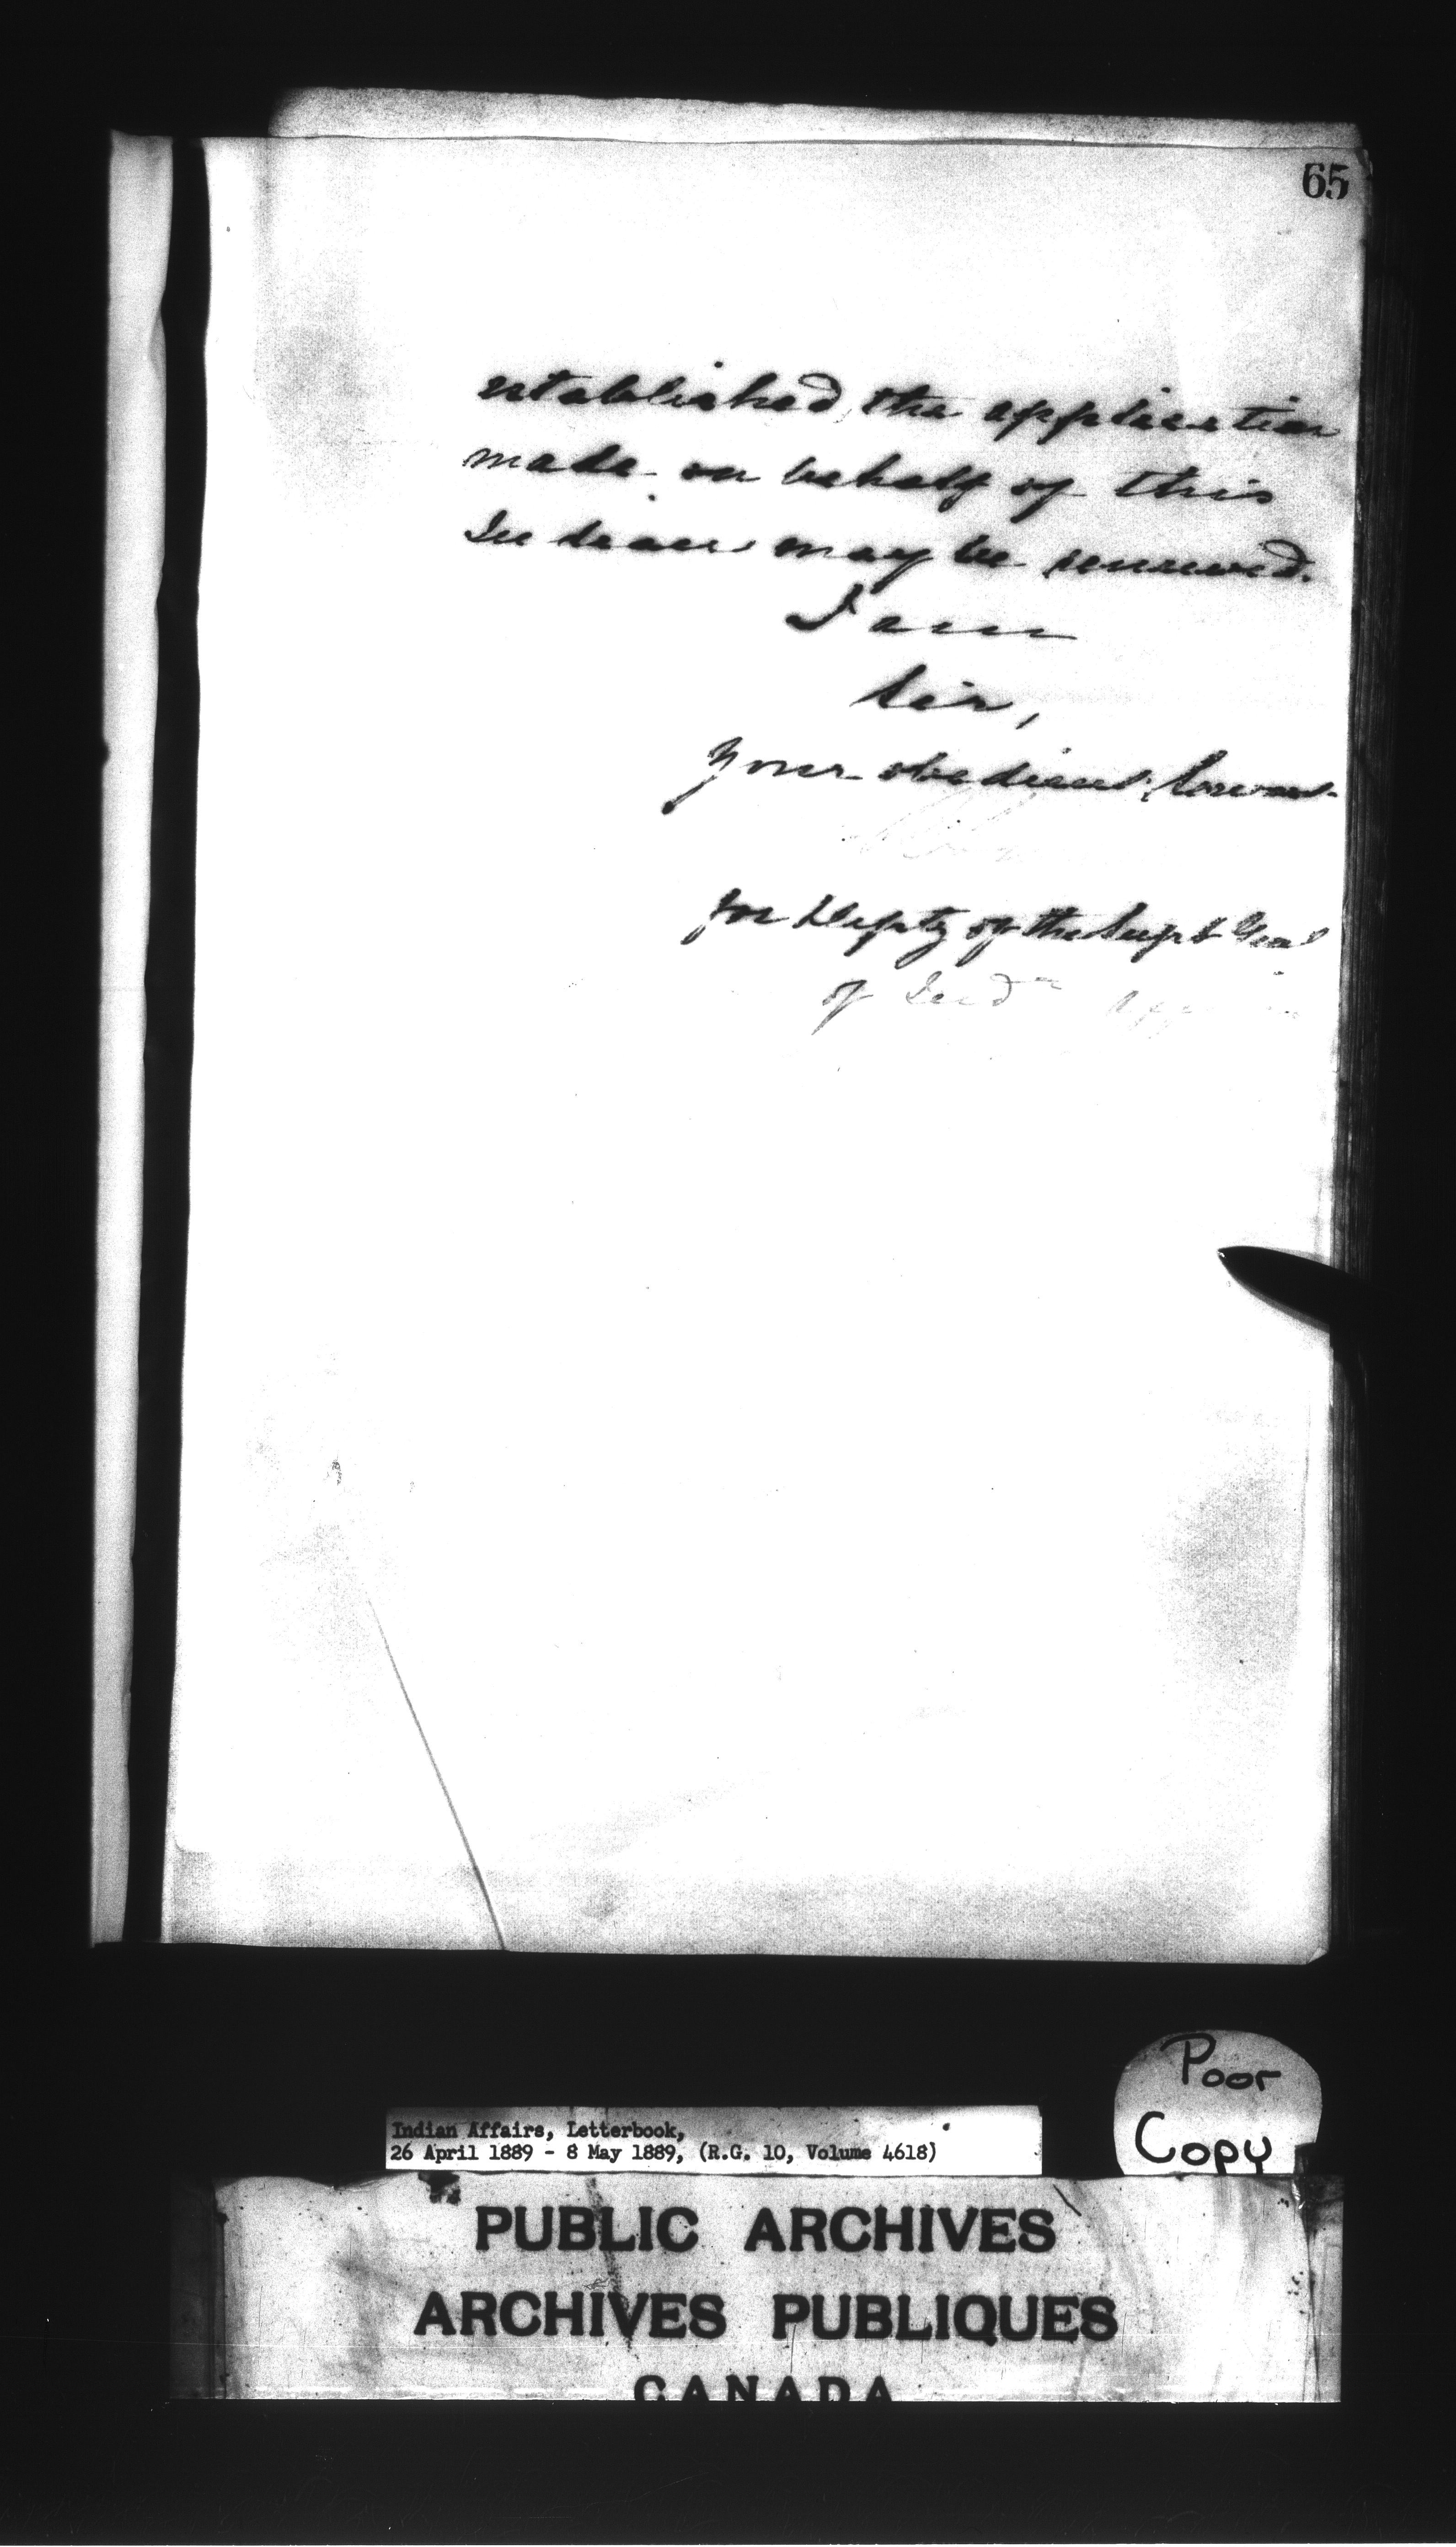 65
established, the application
made on behalf of this
Indian may be renewed.
I am
Sir,
Your obedient Servant
for Deputy of the Supt Genl
of Indn
Poor
Copy
Indian Affairs, Letterbook,
26 April 1889 - 8 May 1889, (R.G. 10, Volume 4618)
PUBLIC ARCHIVES
ARCHIVES PUBLIQUES
CANADA